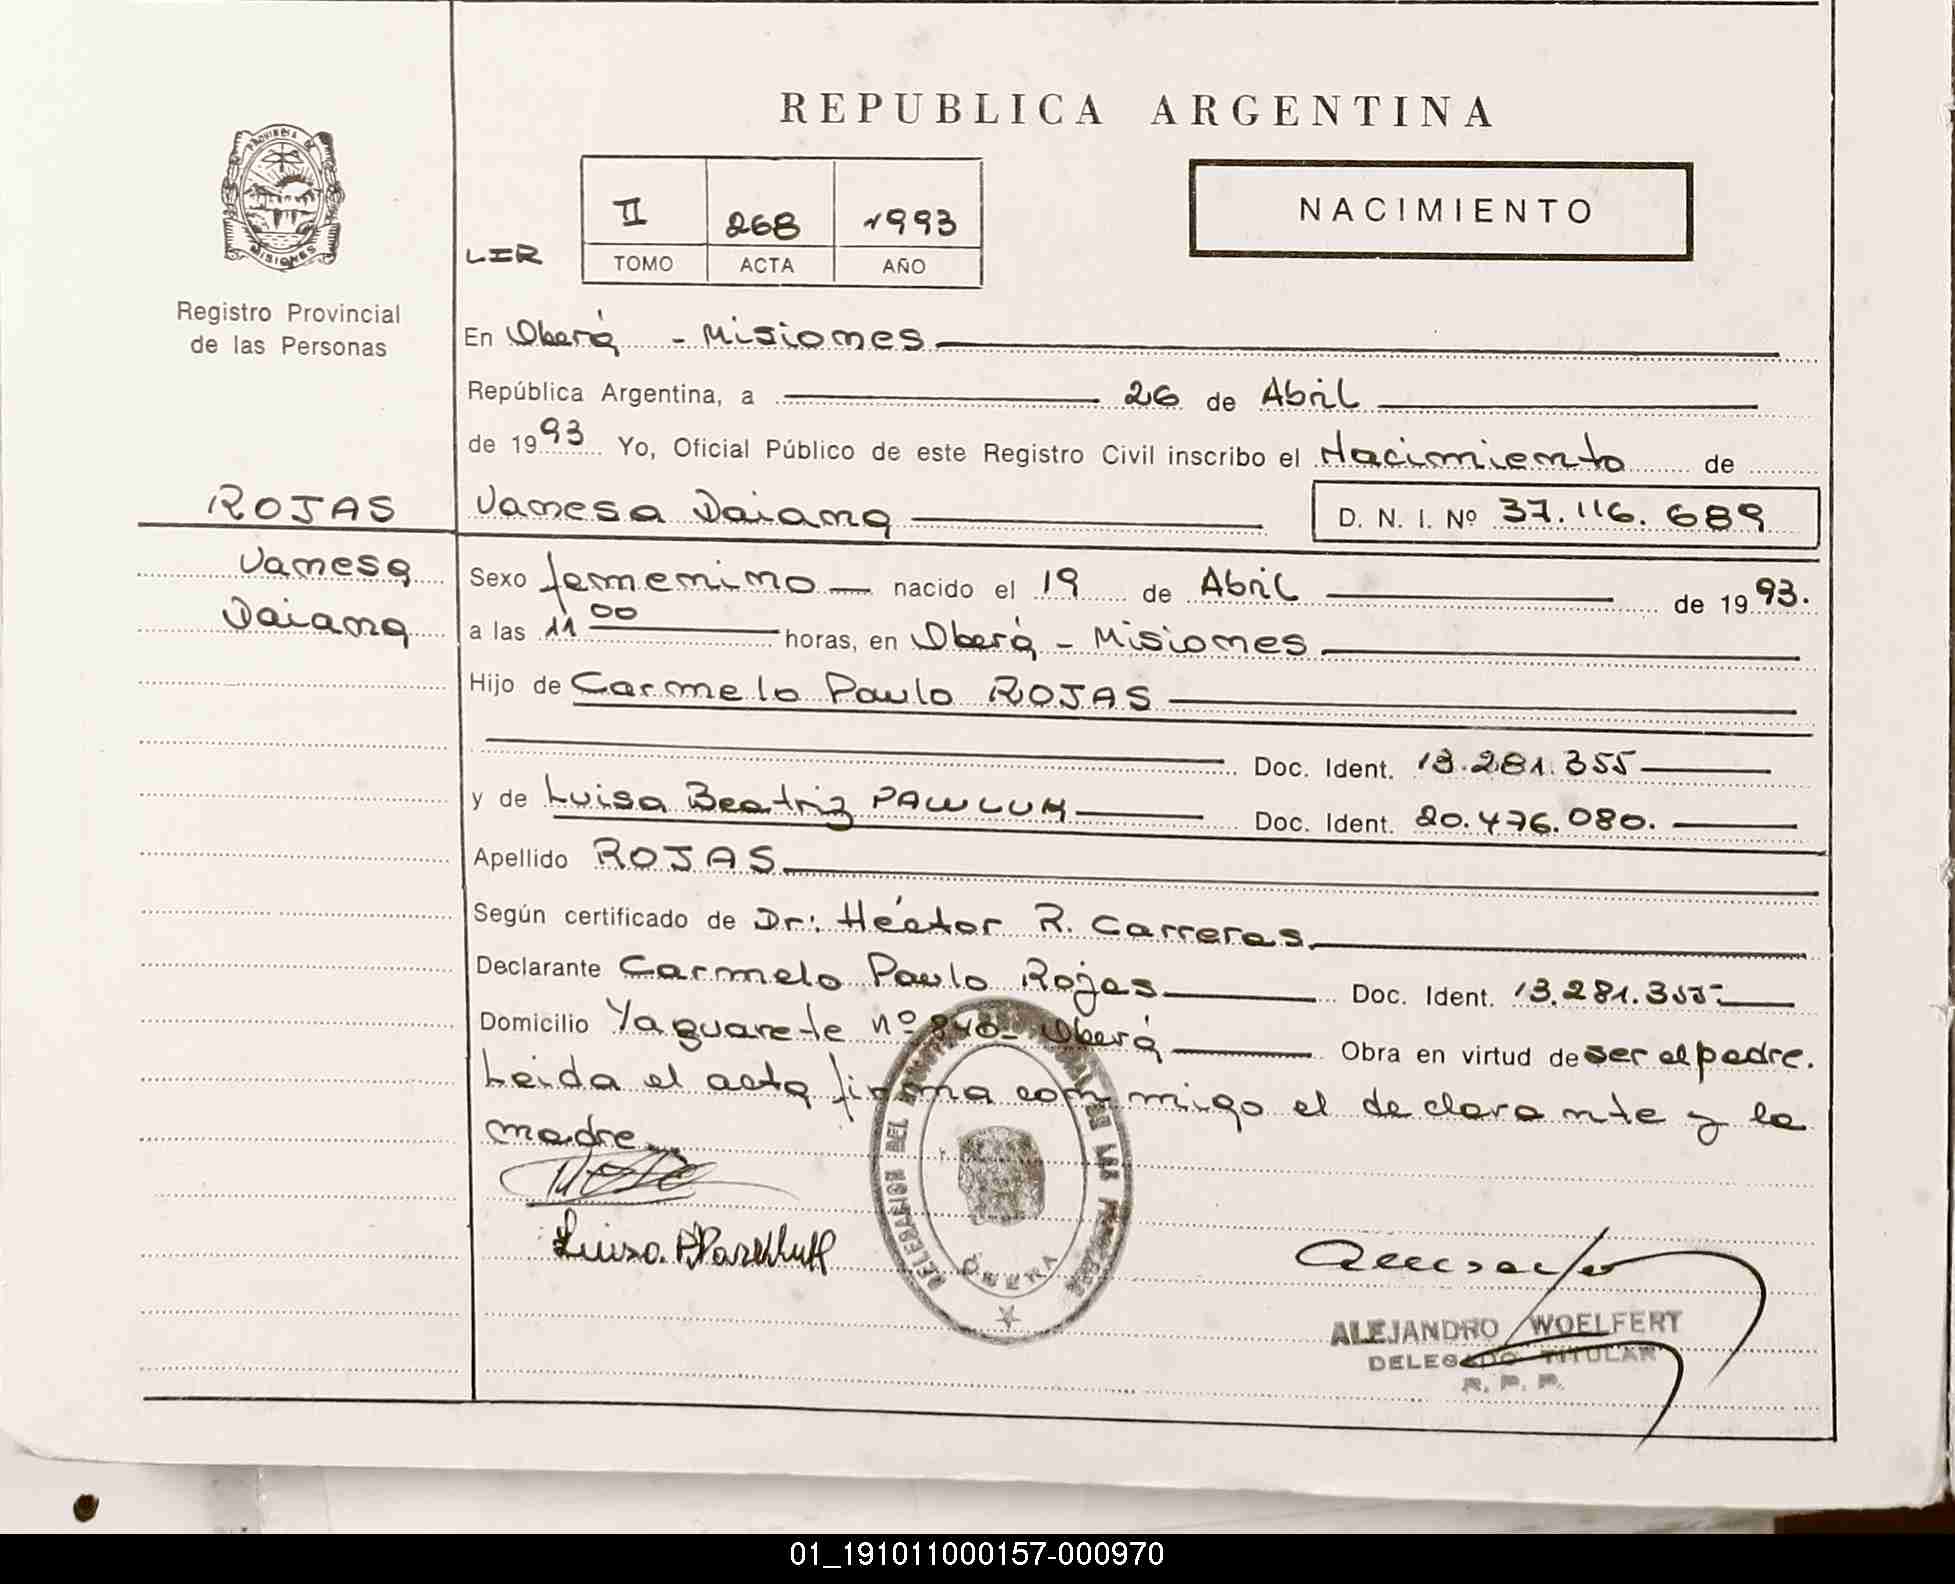 REPUBLICA ARGENTINA
PROVINCIA DE
MISIONES
Registro Provincial
de las Personas
II 268 1993
TOMO ACTA AÑO
NACIMIENTO
En Oberá - Misiones
República Argentina, a 26 de Abril
de 1993 Yo, Oficial Público de este Registro Civil inscribo el Nacimiento de
ROJAS
Vanesa Daiana D. N. I. Nº 37.116.689
Vanesa
Daiana
Sexo femenino nacido el 19 de Abril de 1993.
a las 11 00 horas, en Oberá - Misiones
Hijo de Carmelo Paulo ROJAS
Doc. Ident. 13.281.355
y de Luisa Beatriz Doc. Ident. 20.476.080.
Apellido ROJAS
Según certificado de Dr: Héctor R. Carreras
Declarante Carmelo Paulo Rojas Doc. Ident. 13.281.355
Domicilio Yaguarete nº 840- Oberá Obra en virtud de ser el padre.
Leida el acta firma conmigo el declarante y la
madre
Luisa
OBERA
ALEJANDRO WOELFERT
DELEGADO TITULAR
R. P. P.
01_191011000157-000970